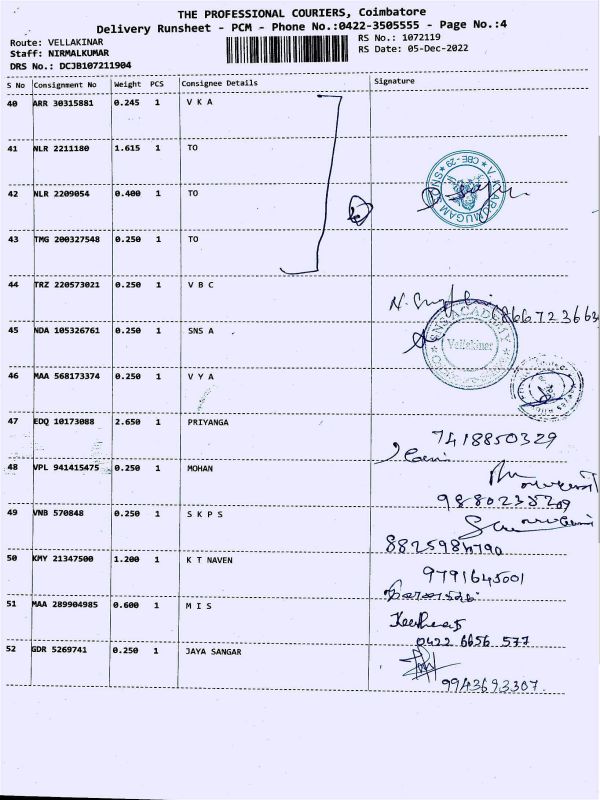 THE PROFESSIONAL COURIERS, Coimbatore
Delivery Runsheet - PCM - Phone No.:0422-3505555 - Page No.:4
Route: VELLAKINAR RS No.: 1072119
Staff: NIRMALKUMAR RS Date: 05-Dec-2022
DRS No.: DCJB107211904
S No Consignment No Weight PCS Consignee Details Signature
40 ARR 30315881 0.245 1 V K A
41 NLR 2211180 1.615 1 TO
42 NLR 2209054 0.400 1 TO
43 TMG 200327548 0.250 1 TO
44 TRZ 220573021 0.250 1 V B C
45 NDA 105326761 0.250 1 SNS A
SNS ACADEMY
Vellakinar
46 MAA 568173374 0.250 1 V Y A
47 EDQ 10173088 2.650 1 PRIYANGA
7418850329
48 VPL 941415475 0.250 1 MOHAN
49 VNB 570848 0.250 1 S K P S
50 KMY 21347500 1.200 1 K T NAVEN
9791645001
51 MAA 289904985 0.600 1 M I S
0422 6656 577
52 GDR 5269741 0.250 1 JAYA SANGAR
9943693307